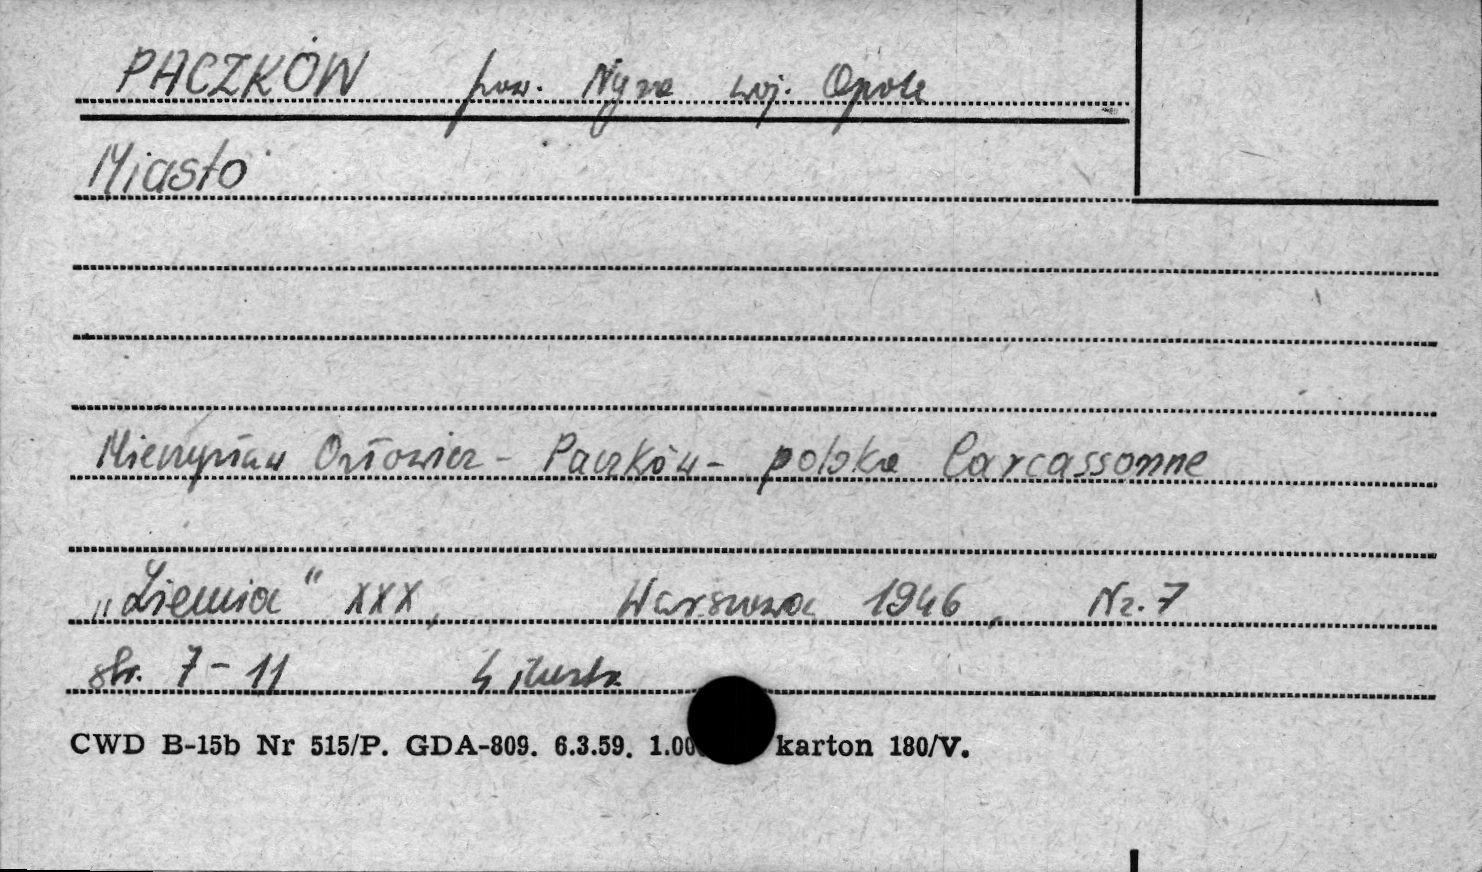 PACZKÓW pow. Nysa woj. Opole
Miasto
Mieczysław Orłowicz - Paczków - polskie Carcassonne
„Ziemia" XXX, Warszawa 1946, Nr. 7
str. 7-11 4 ilustr.
CWD B-15b Nr 515/P. GDA-809. 6.3.59. karton 180/V.